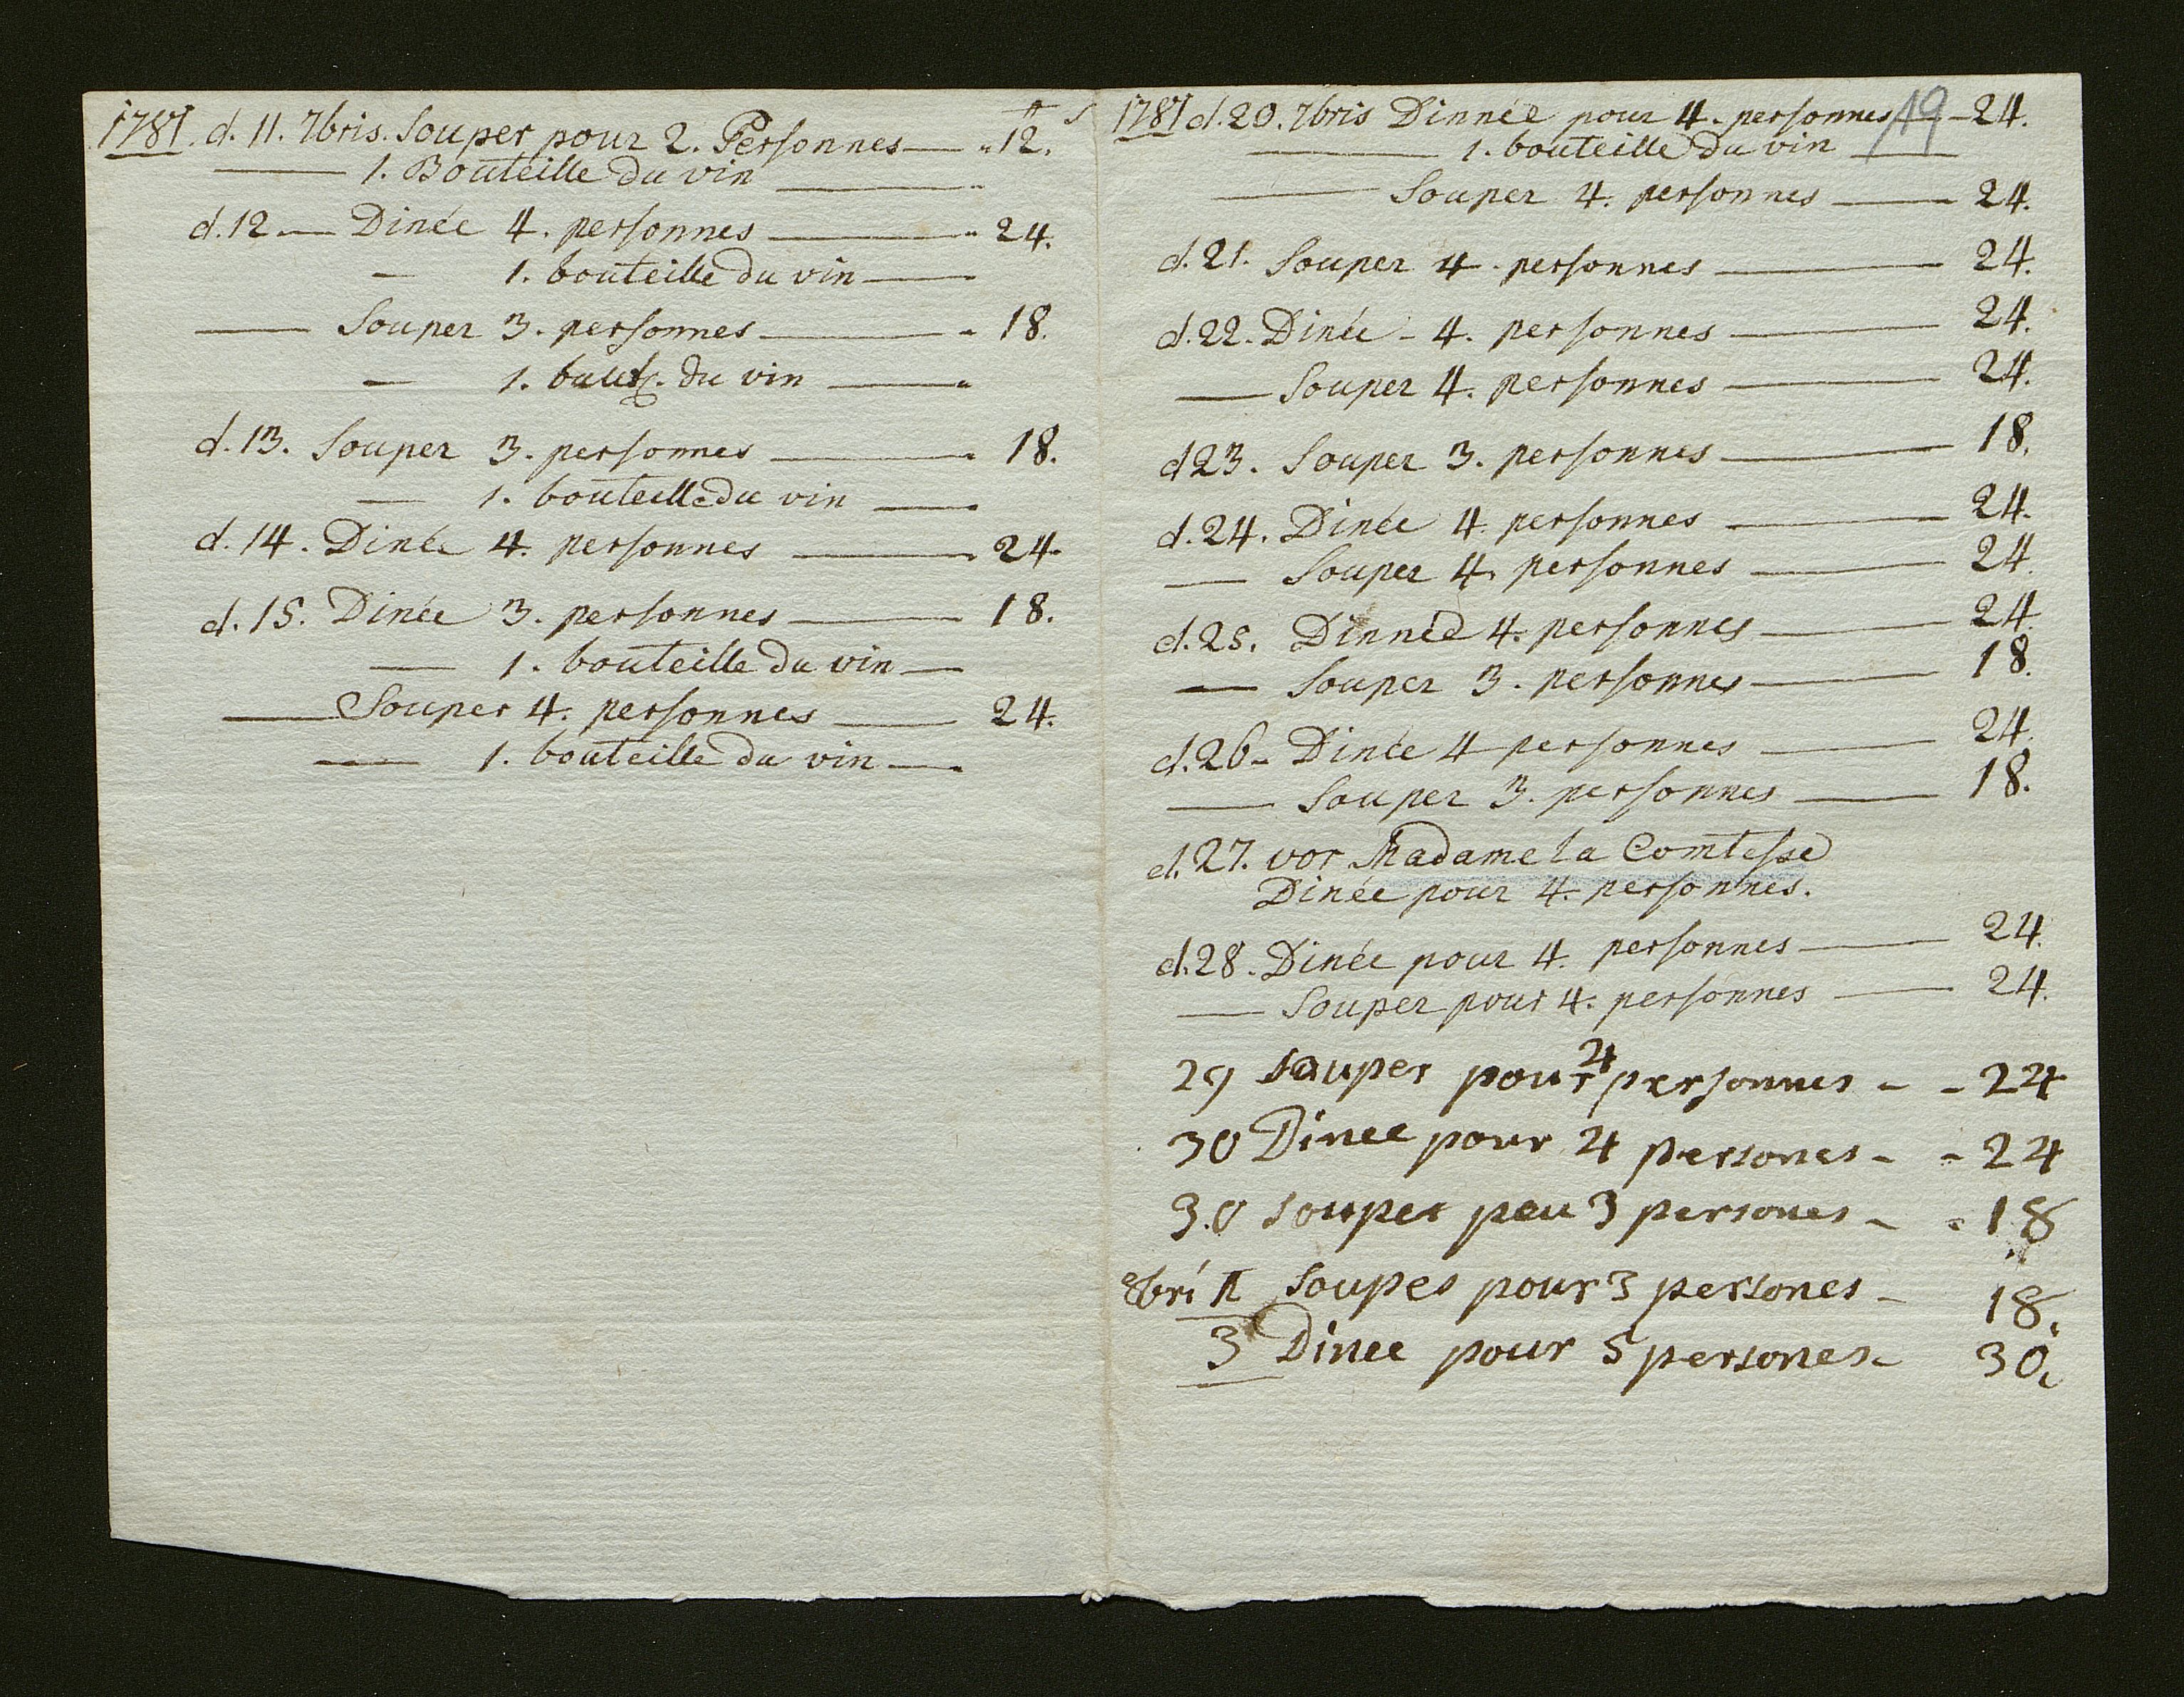 1787. d. 11. 7bris. Souper pour 2. Personnes — 12.
— 1. Bouteille du vin —
d. 12 — Dinée 4. personnes — 24.
— 1. bouteille du vin —
— Souper 3. personnes — 18.
— 1. bout. du vin —
d. 13. Souper 3. personnes — 18.
— 1. bouteille du vin —
d. 14. Dinée 4. personnes — 24.
d. 15. Dinée 3. personnes — 18.
— 1. bouteille du vin —
— Souper 4. personnes — 24.
— 1. bouteille du vin —
1787 d. 20. 7bris Dinnée pour 4. personnes — 24.
19
— 1. bouteille du vin —
— Souper 4. personnes — 24.
d. 21. Souper 4. personnes — 24.
d. 22. Dinée - 4. personnes — 24.
— Souper 4. personnes — 24.
d 23. Souper 3. personnes — 18.
d. 24. Dinée 4. personnes — 24.
— Souper 4. personnes — 24.
d. 25. Dinnée 4. personnes — 24.
— Souper 3. personnes — 18.
d. 26 - Dinée 4 personnes — 24.
— Souper 3. personnes — 18.
d. 27. vor Madame la Comtesse
Dinée pour 4. personnes.
d. 28. Dinée pour 4. personnes — 24.
— Souper pour 4. personnes — 24.
29 souper pour 4 personnes - - 24
30 Dinee pour 4 persones - - 24
3.0 souper peu 3 persones - - 18
8bri 1 soupes pour 3 persones - 18.
3 Dinee pour 5 persones - 30.